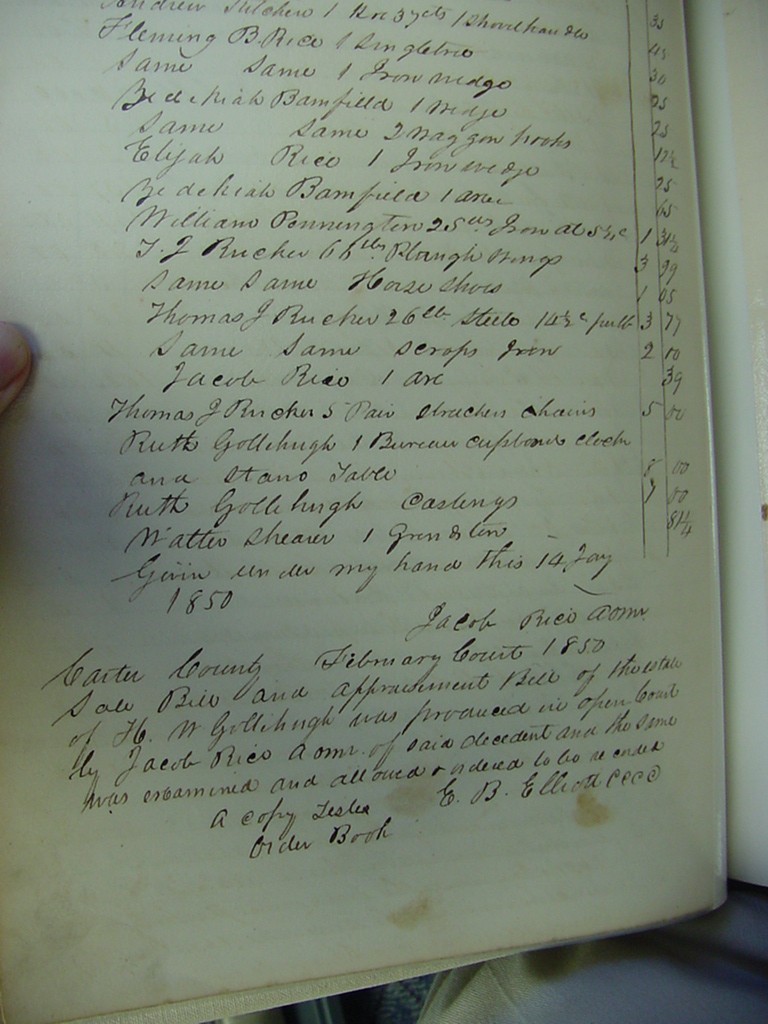 Andrew 1 Hoe 1 Shovel 35
Fleming B. Rice 1 Singletree
Same Same 1 Iron wedge 30
Zedekiah Bamfield 1 wedge 25
Same Same 2 waggon hooks 25
Elijah Rice 1 Iron wedge 12½
Zedekiah Bamfield 1 25
William Pennington 25 lbs Iron at 5¼c 1 31¼
T. J Rucker lbs Plough wings 3 99
Same Same Horse Shoes 1 05
Thomas J Rucker 26 lb Steele 14½c pr lb 3 77
Same Same scraps Iron 2 10
Jacob Rice 1 axe 39
Thomas J Rucker 5 Pair chains 5 00
Ruth Gollihugh 1 Bureau cupboard clock
and Stand Table 8 00
Ruth Gollihugh Castings 7 00
Walter Shearer 1 Grindston 81¼
Givin under my hand this 14 Jay
1850
Jacob Rice Admr.
Carter County February Court 1850
Sale Bill and appraisment Bill of the estate
of H. W Gollihugh was produced in open Court
by Jacob Rice Admr. of said decedent and the same
was examined and allowed & ordered to be recorded
A copy Teste E. B. Elliott CCCC
Order Book